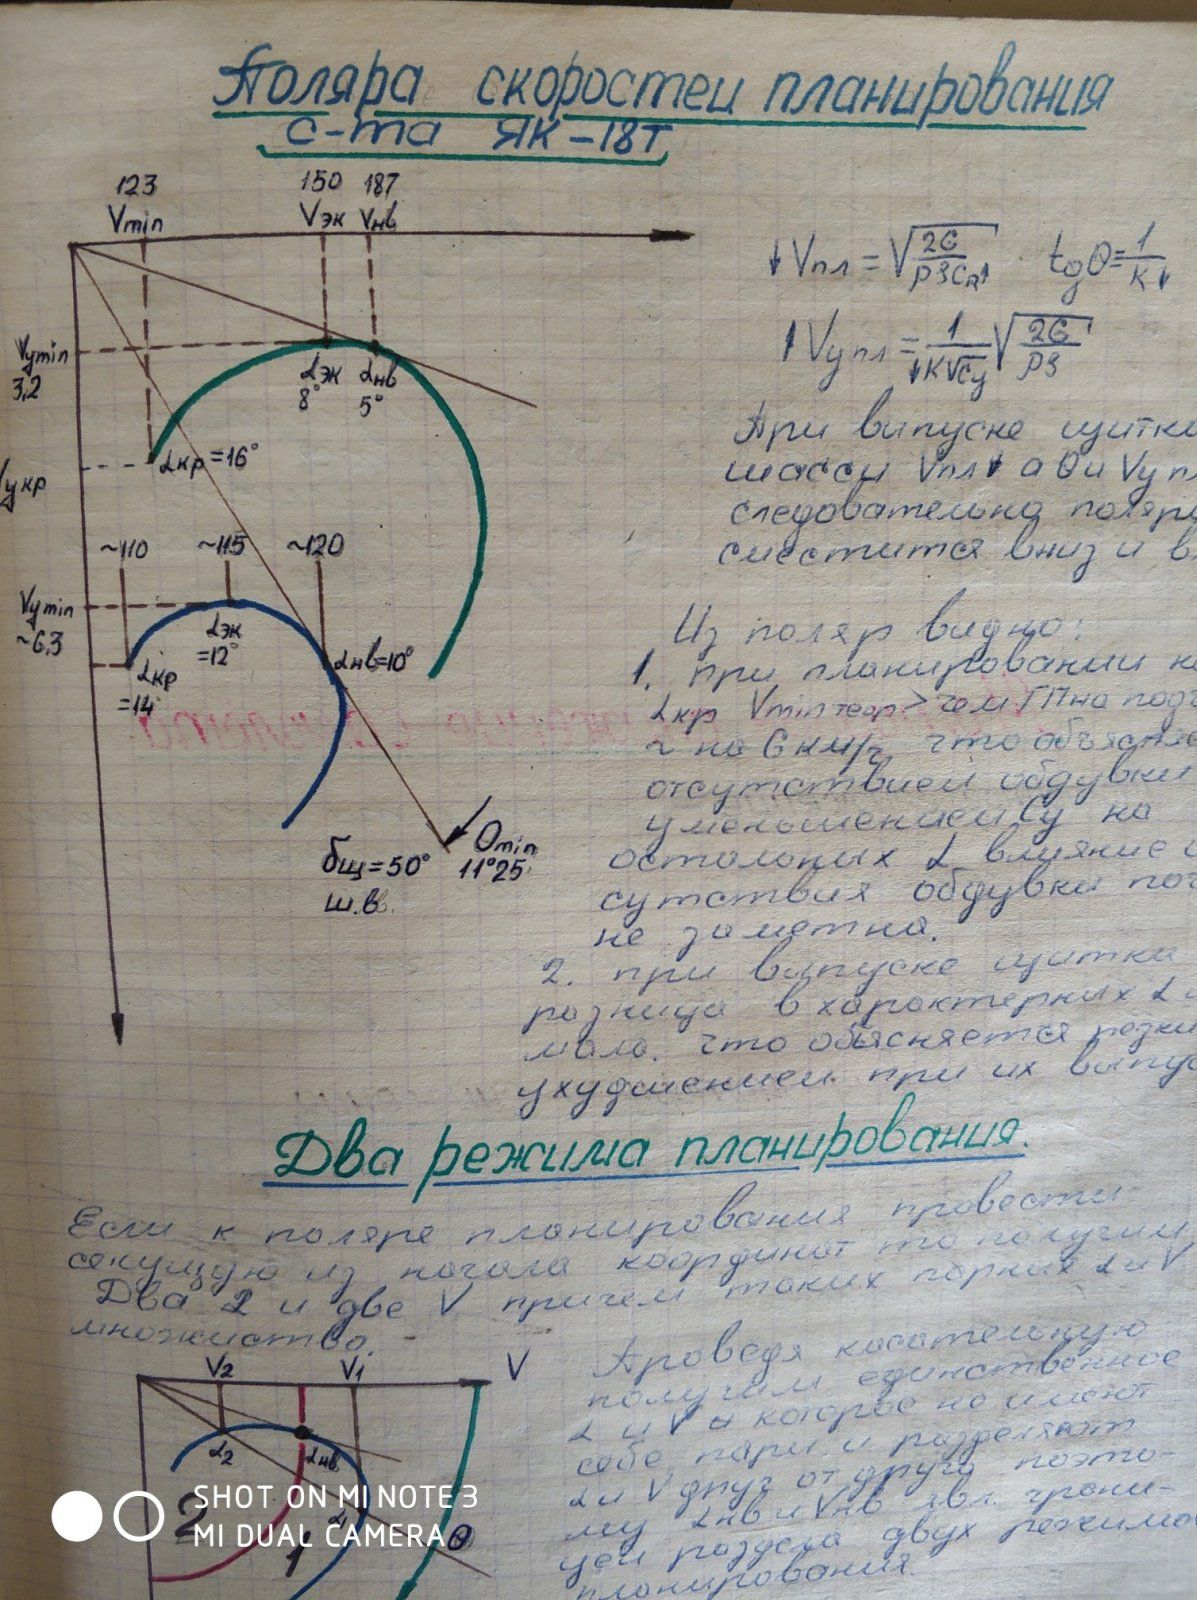 Поляра скоростей планирования
с-та ЯК-18Т
123 150 187
Vmin Vэк Vнв
Vymin
3,2
αэк
8°
αнв
5°
αкр=16°
Vyкр
~110 ~115 ~120
Vymin
~6,3
αэк
=12°
αкр
=14°
αнв=10°
δщ=50°
ш.в.
Θmin
11°25'
↓Vпл=√2G/ρSCR↑ tgΘ=1/K↓
↑Vyпл=1/↓K√Cy √2G/ρS
При випуске щитко
шасси Vпл↓ а Θ и Vy пл
следовательно поляра
сместится вниз и в
Из поляр видно:
1. при планировании на
αкр Vmin теор > чем ГП на
на 6 км/ч что объясняе
отсутствием обдувки
уменьшением Cy на
остальных α влияние о
сутствия обдувки поч
не заметна.
2. при випуске щитка
разница в характерных α
мала. что объясняется резки
ухудшением при их выпус
Два режима планирования.
Если к поляре планирования провести
секущую из начала координат то получим
Два α и две V причем таких парных α и V
множиство.
V2 V1 V
α2 αнв α1
2 1 Θ
Проведя касательную
получим единственное
α и V которое не имеют
себе пари и разделяют
α и V друг от друга поэто-
му αнв и Vнв явл. грани-
цей раздела двух режимо
планирования.
SHOT ON MI NOTE 3
MI DUAL CAMERA